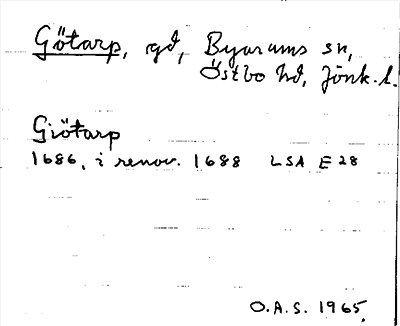 Götarp, gd, Byarums sn,
Östbo hd, Jönk. l.
Giötarp
1686, i renov. 1688 LSA E28
O.A.S. 1965